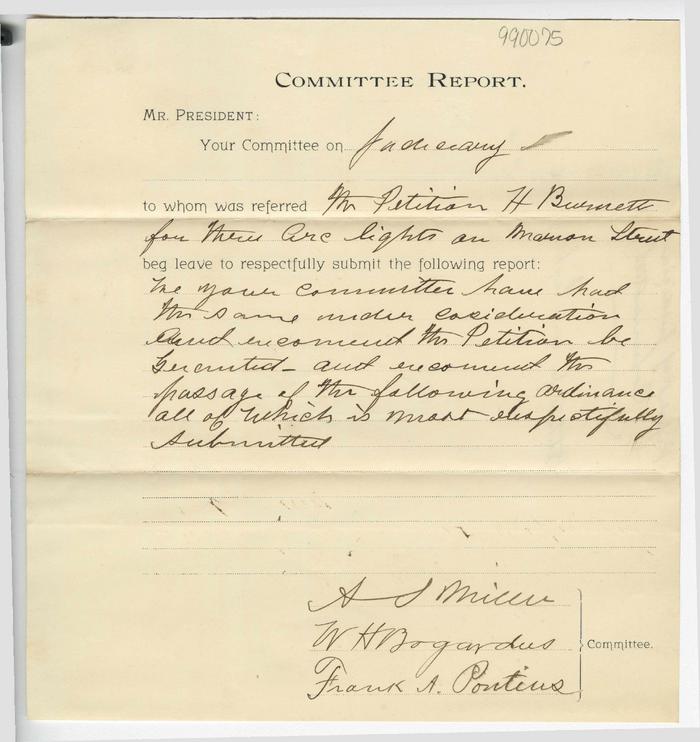 990075
COMMITTEE REPORT.
MR. PRESIDENT:
Your Committee on Judiciary
to whom was referred the Petition H Burnett
for three Arc lights on Marion Street
beg leave to respectfully submit the following report:
We your committee have had
the same under cosideration
and recomend the Petition be
Geranted - and recomend the
passage of the following ordinance
all of which is most respectfully
submitted
A S Miller
W H Bogardus
Frank A. Pontius
Committee.